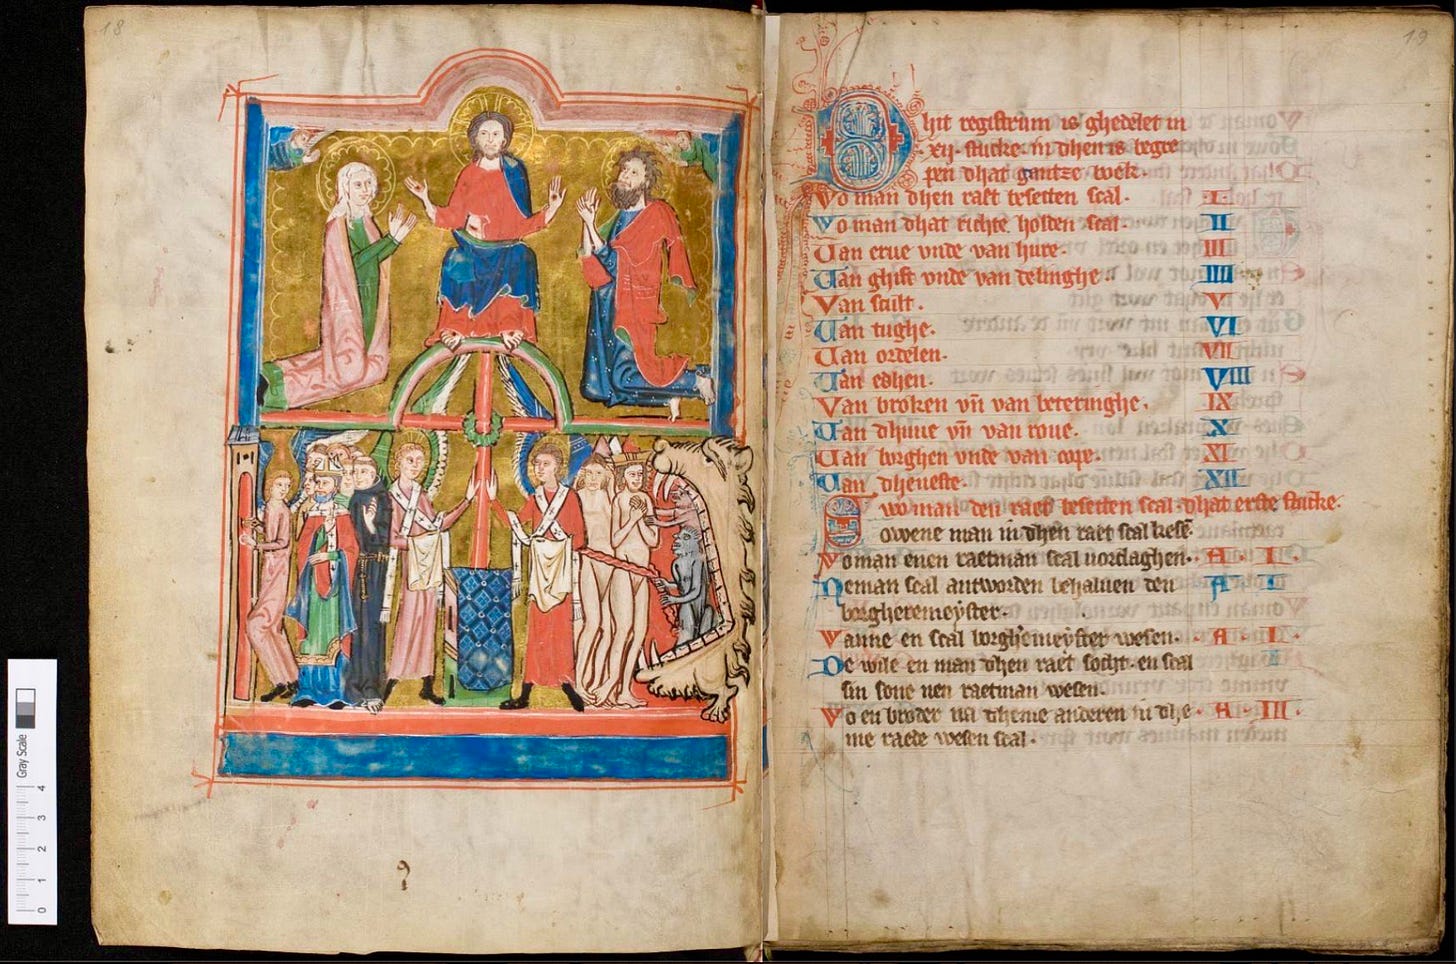 18
Gray Scale
0 1 2 3 4
19
Dhit registrum is ghedelet in
xij. stucke. vn̄ dhen is begre
pen dhat gantze boek.
Wo man dhen raet besetten scal. I.
Wo man dhat richte holden scal. II
Van erue vnde van hure. III
Van ghift vnde van delinghe. IIII
Van scult. V
Van tughe. VI
Van ordelen. VII
Van edhen. VIII
Van broken vn̄ van beteringhe. IX
Van dhuue vn̄ van roue. X
Van borghen vnde van cope. XI
Van dheneste. XII
Wo man den raet besetten scal dhat erste stucke.
Sowene man in dhen raet scal kese
Wo man enen raetman scal vorslaghen. A. I.
Neman scal antworden behaluen den A I
borgheremeyster.
Wanne en scal borgh'emeyster wesen. A. I.
De wile en man dhen raet socht. en scal
sin sone nen raetman wesen.
Wo en broder na dheme anderen in dhe A. III.
me raede wesen scal.